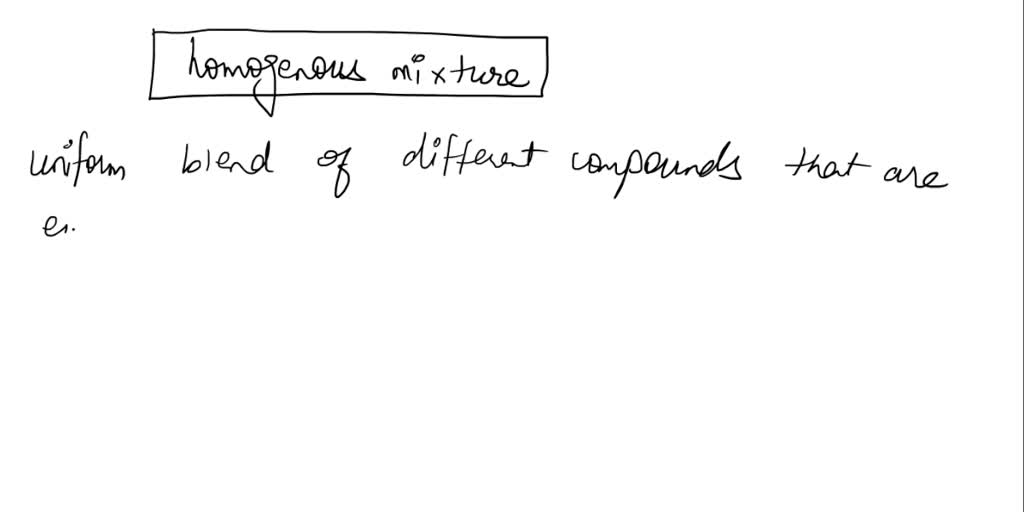 homogenous mixture
uniform blend of different compounds that are